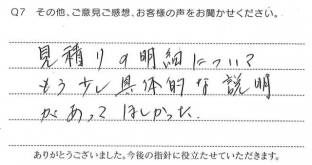 Q7 その他、ご意見ご感想、お客様の声をお聞かせください。
見積りの明細について
もう少し具体的な説明
があってほしかった。
ありがとうございました。今後の指針に役立たせていただきます。